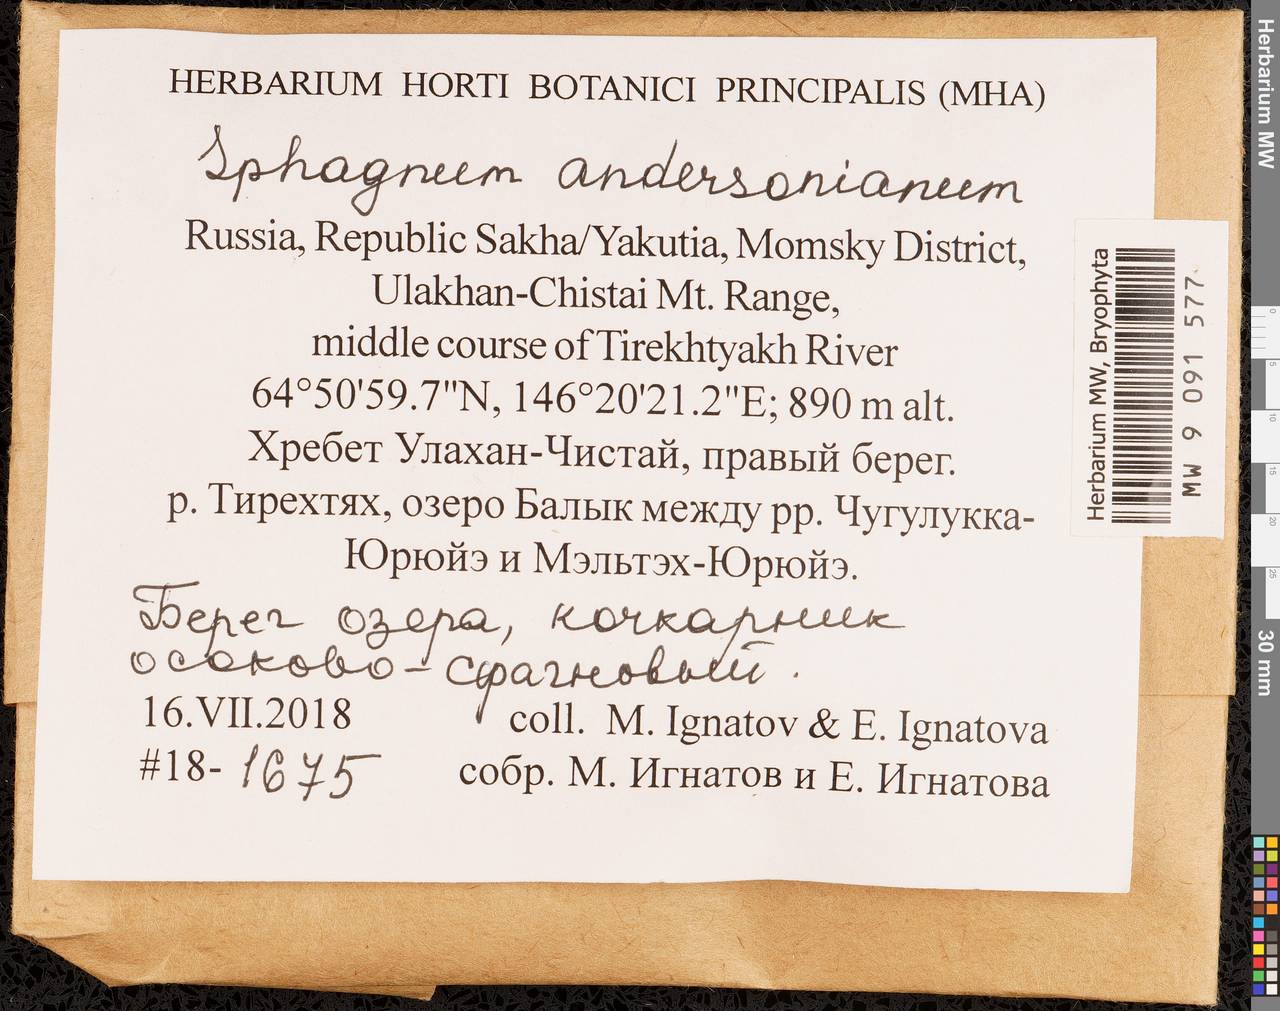 HERBARIUM HORTI BOTANICI PRINCIPALIS (MHA)
Sphagnum andersonianum
Russia, Republic Sakha/Yakutia, Momsky District,
Ulakhan-Chistai Mt. Range,
middle course of Tirekhtyakh River
64°50'59.7"N, 146°20'21.2"E; 890 m alt.
Хребет Улахан-Чистай, правый берег.
р. Тирехтях, озеро Балык между рр. Чугулукка-
Юрюйэ и Мэльтэх-Юрюйэ.
Берег озера, кочкарник
осоково-сфагновый.
16.VII.2018 coll. M. Ignatov & E. Ignatova
#18-1675 собр. М. Игнатов и Е. Игнатова
Herbarium MW, Bryophyta
MW 9 091 577
Herbarium MW
0
5
10
15
20
25
30 mm